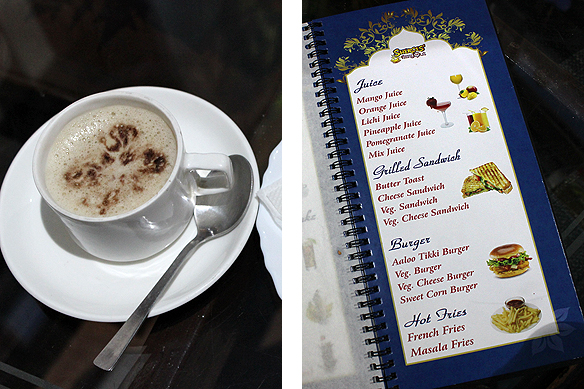 Juice
Mango Juice
Orange Juice
Lichi Juice
Pineapple Juice
Pomegranate Juice
Mix Juice
Grilled Sandwich
Butter Toast
Cheese Sandwich
Veg. Sandwich
Veg. Cheese Sandwich
Burger
Aaloo Tikki Burger
Veg. Burger
Veg. Cheese Burger
Sweet Corn Burger
Hot Fries
French Fries
Masala Fries